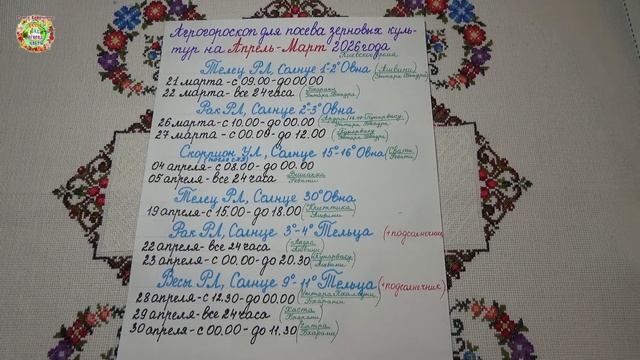 Агрогороскоп для посева зерновых куль-
тур на Апрель-Март 2026 года
Телец РЛ, Солнце 1°-2° Овна (Ашвини)
21 марта - с 09.00 - до 00.00
22 марта - все 24 часа
Рак РЛ, Солнце 2°-3° Овна
26 марта - с 10.00 - до 00.00
27 марта - с 00.00 - до 12.00
Скорпион УЛ, Солнце 15°-16° Овна
04 апреля - с 08.00 - до 00.00
05 апреля - все 24 часа
Телец РЛ, Солнце 30° Овна
19 апреля - с 15.00 - до 18.00 (Криттика Ашвини)
Рак РЛ, Солнце 3°-4° Тельца (+подсолнечник)
22 апреля - все 24 часа
23 апреля - с 00.00 - до 20.30
Весы РЛ, Солнце 9°-11° Тельца (+подсолнечник)
28 апреля - с 12.30 - до 00.00
29 апреля - все 24 часа (Хаста Бхарани)
30 апреля - с 00.00 - до 11.30 (Читра Бхарани)